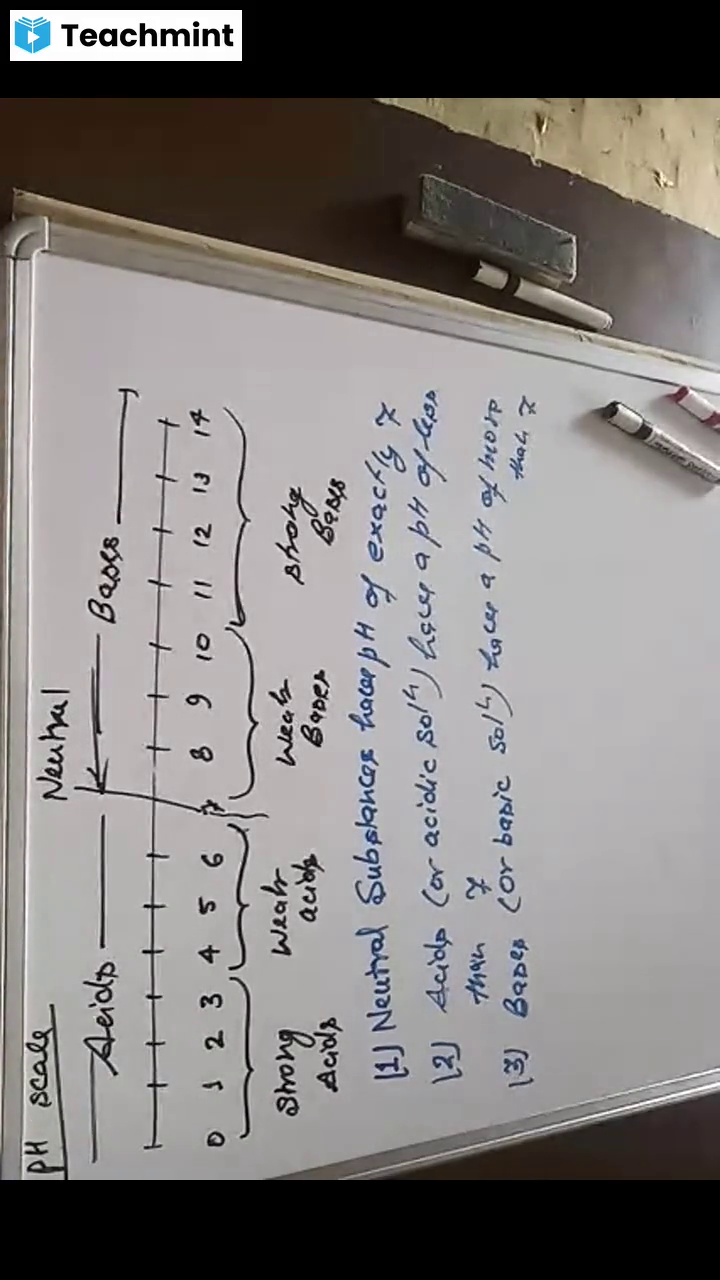 Teachmint
pH scale
Neutral
Acids Bases
0 1 2 3 4 5 6 7 8 9 10 11 12 13 14
Strong Acids Weak acids Weak Bases Strong Bases
[1] Neutral Substances have pH of exactly 7
[2] Acids (or acidic solⁿ) have a pH of less
than 7
[3] Bases (or basic solⁿ) have a pH of more
than 7